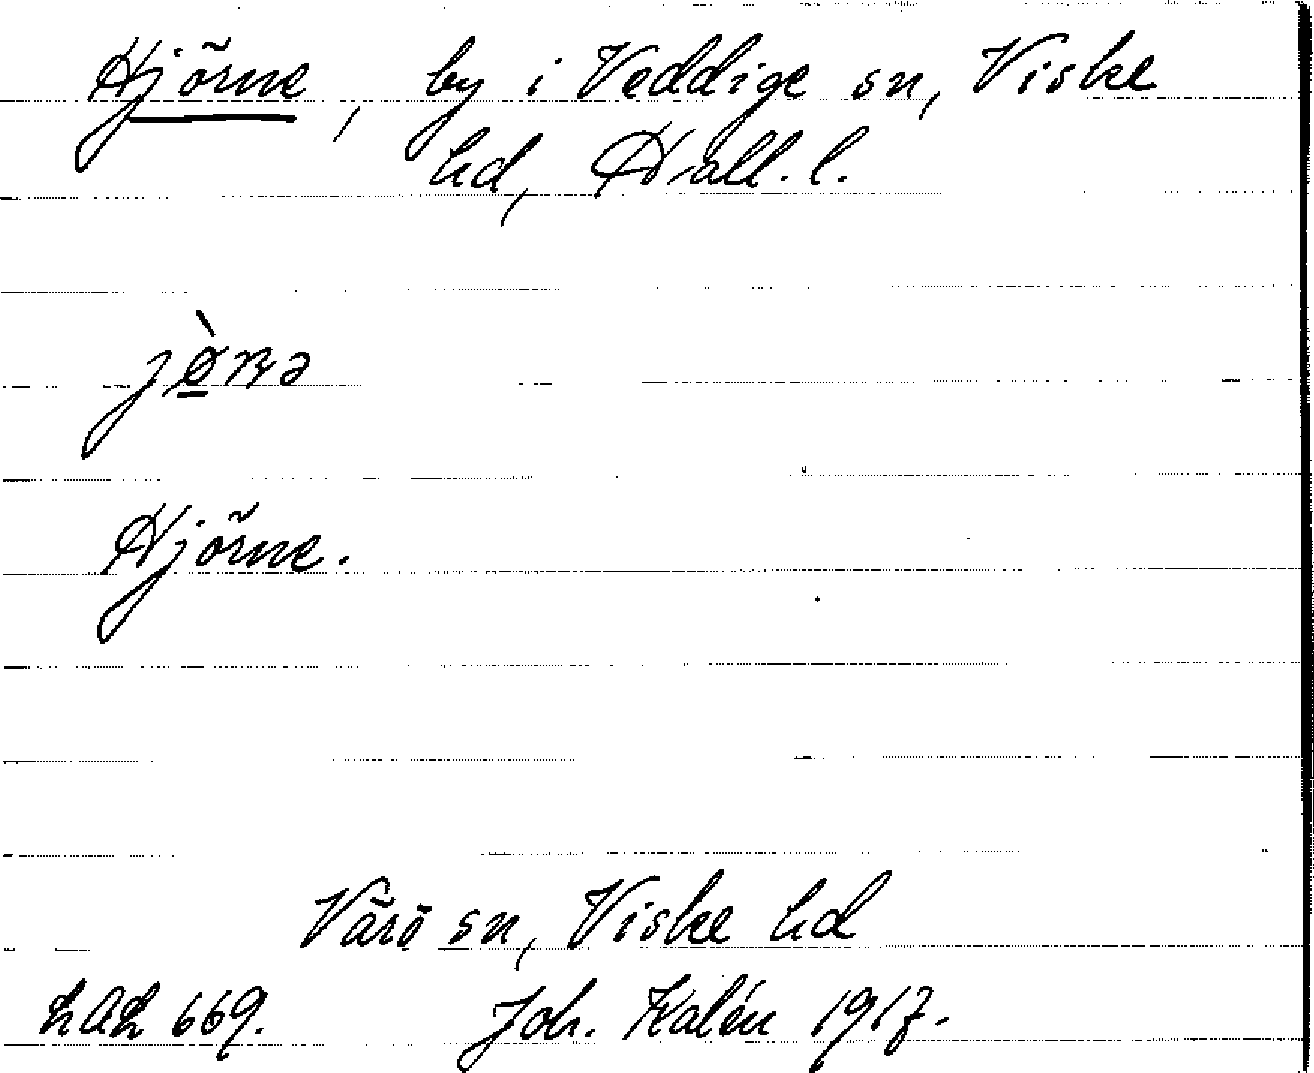 Hjörne, by i Veddige sn, Viske
hd, Hall. l.
jø̀ɳə
Hjörne.
Värö sn, Viske hd
LAL 669. Joh. Kalén 1917.